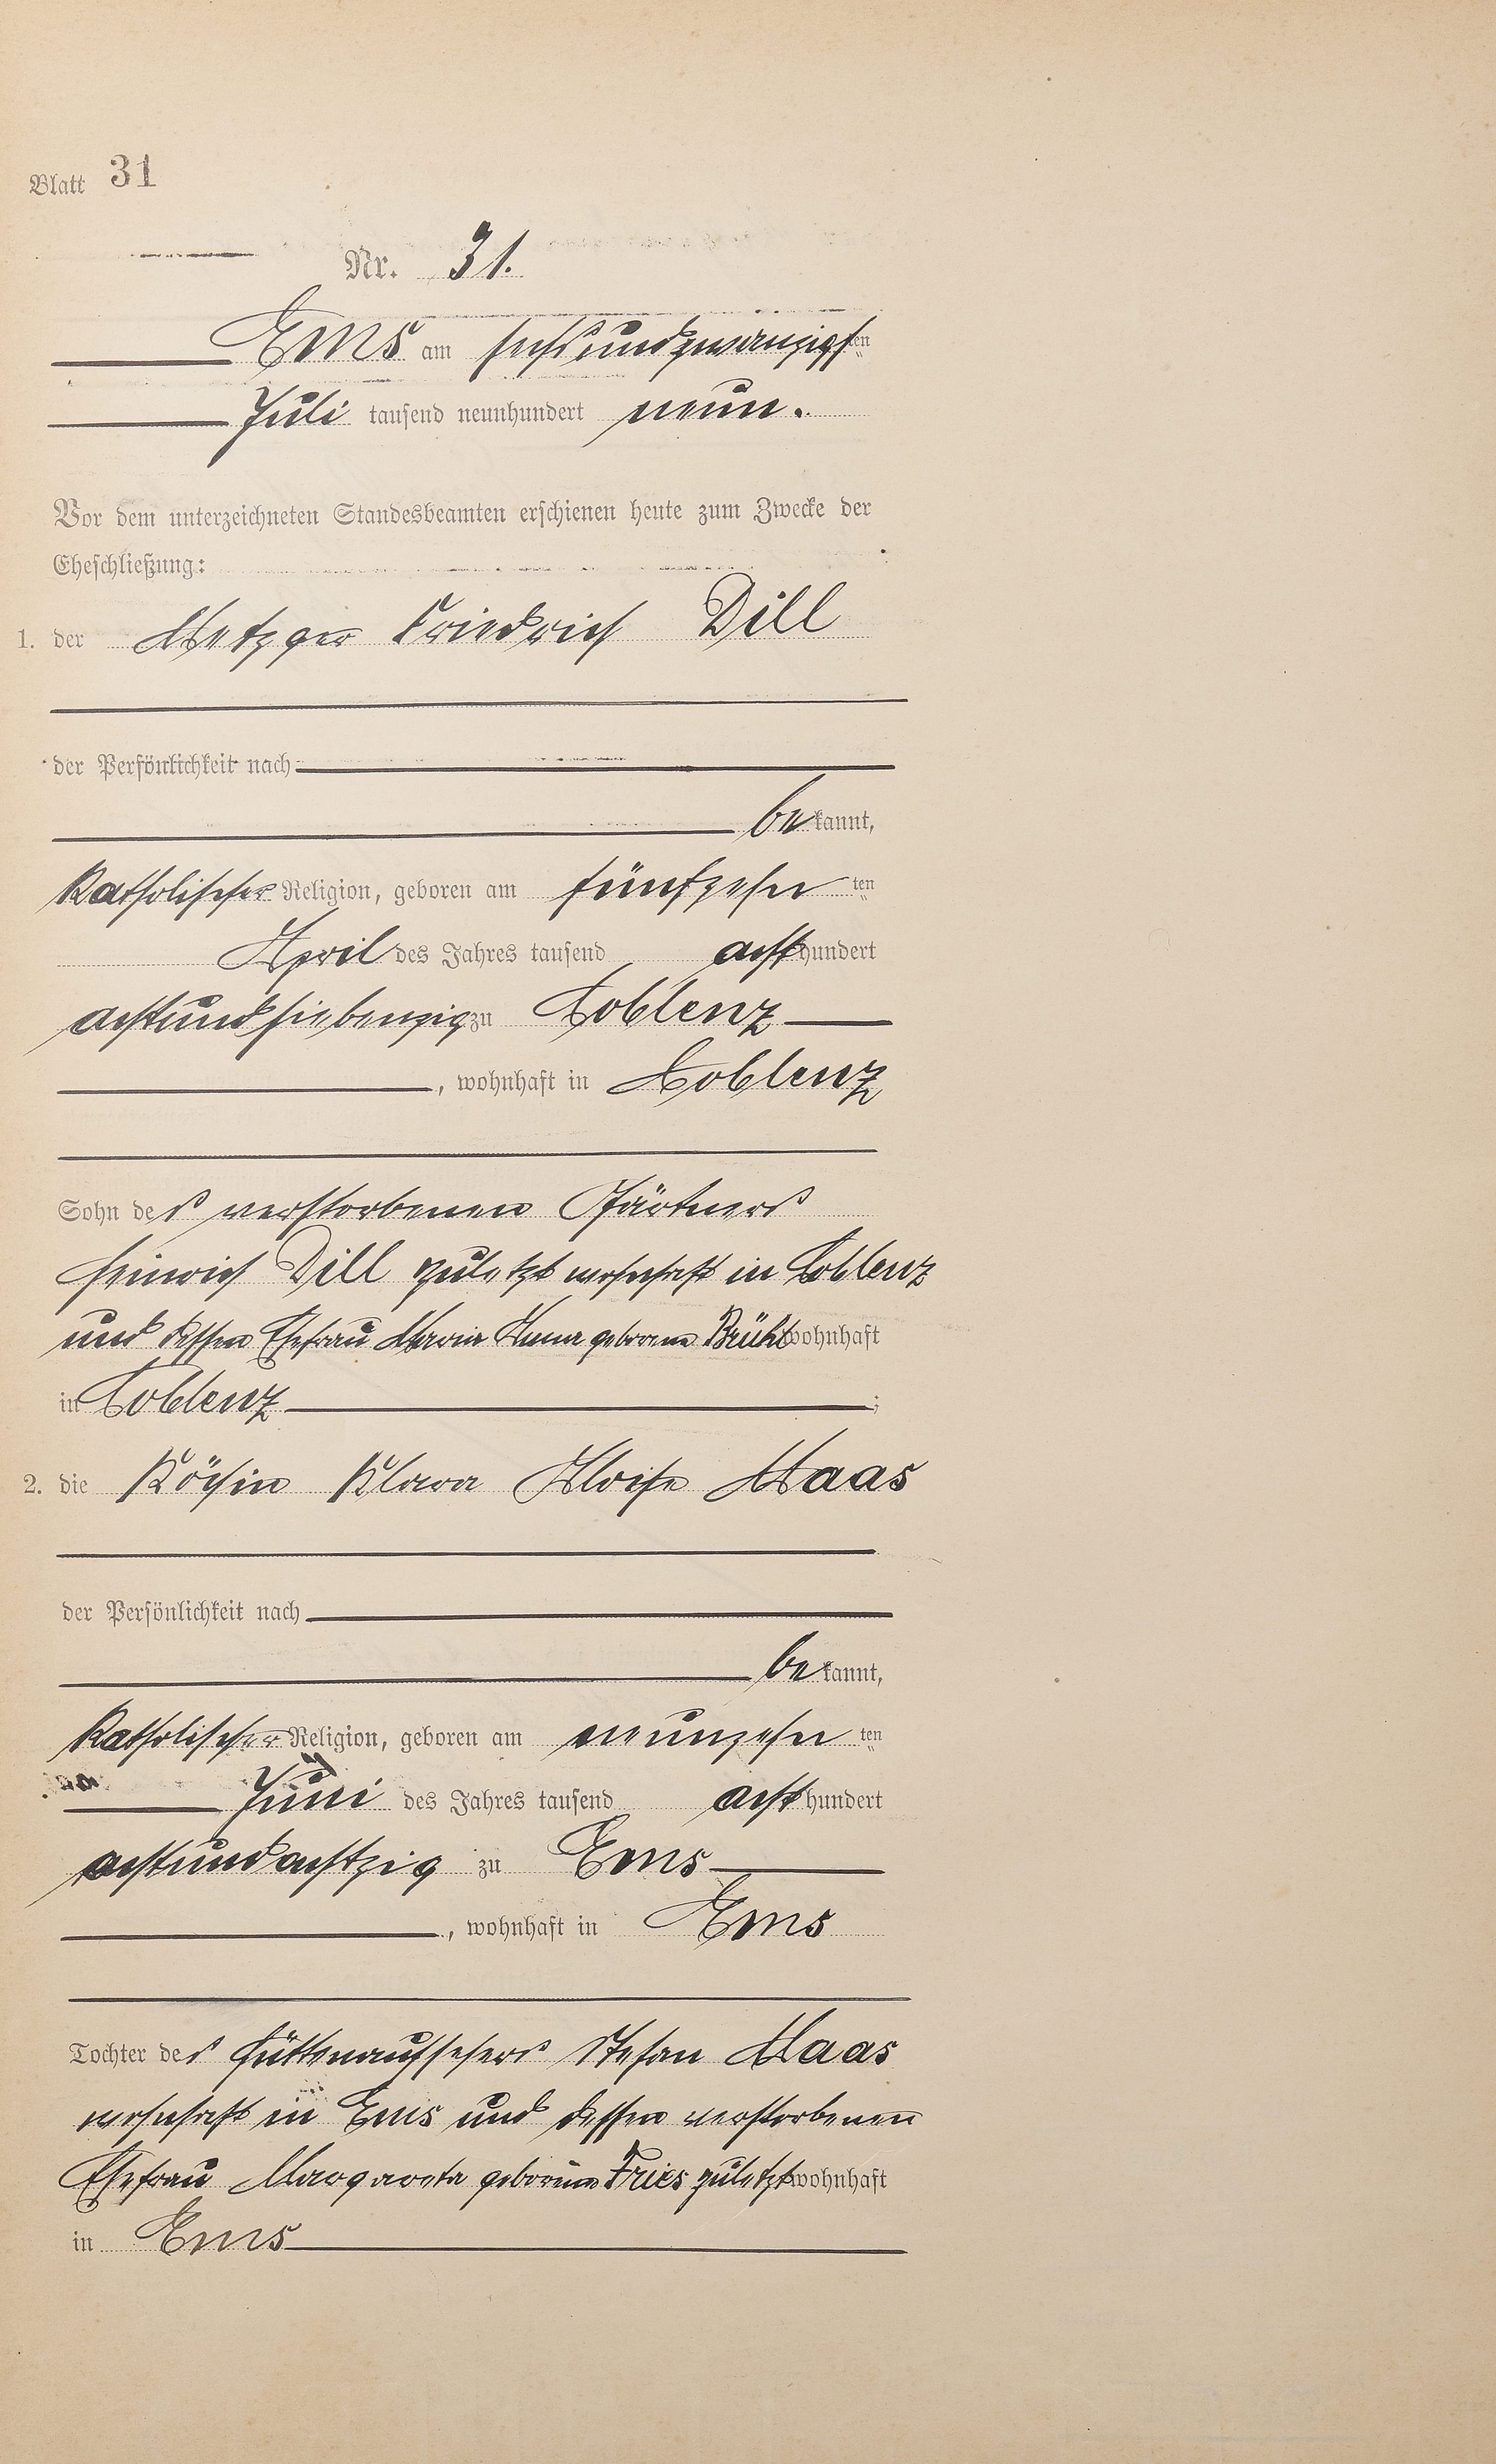 Blatt 31
Nr. 31.
Ems am sechsundzwanzigsten
Juli tausend neunhundert neun.
Vor dem unterzeichneten Standesbeamten erschienen heute zum Zwecke der
Eheschließung:
1. der Metzger Friedrich Dill
der Persönlichkeit nach
bekannt,
katholischer Religion, geboren am fünfzehnten
April des Jahres tausend achthundert
achtundsiebenzig zu Coblenz
, wohnhaft in Coblenz
Sohn des verstorbenen Gärtners
Heinrich Dill zuletzt wohnhaft in Coblenz
und dessen Ehefrau Maria Anna geborene Brühl wohnhaft
in Coblenz ;
2. die Köchin Klara Aloise Maas
der Persönlichkeit nach
bekannt,
katholischer Religion, geboren am neunzehnten
Juni des Jahres tausend achthundert
achtundachtzig zu Ems
, wohnhaft in Ems
Tochter des Hüttenaufsehers Stefan Maas
wohnhaft in Ems und dessen verstorbenen
Ehefrau Margareta geborene Fries zuletzt wohnhaft
in Ems